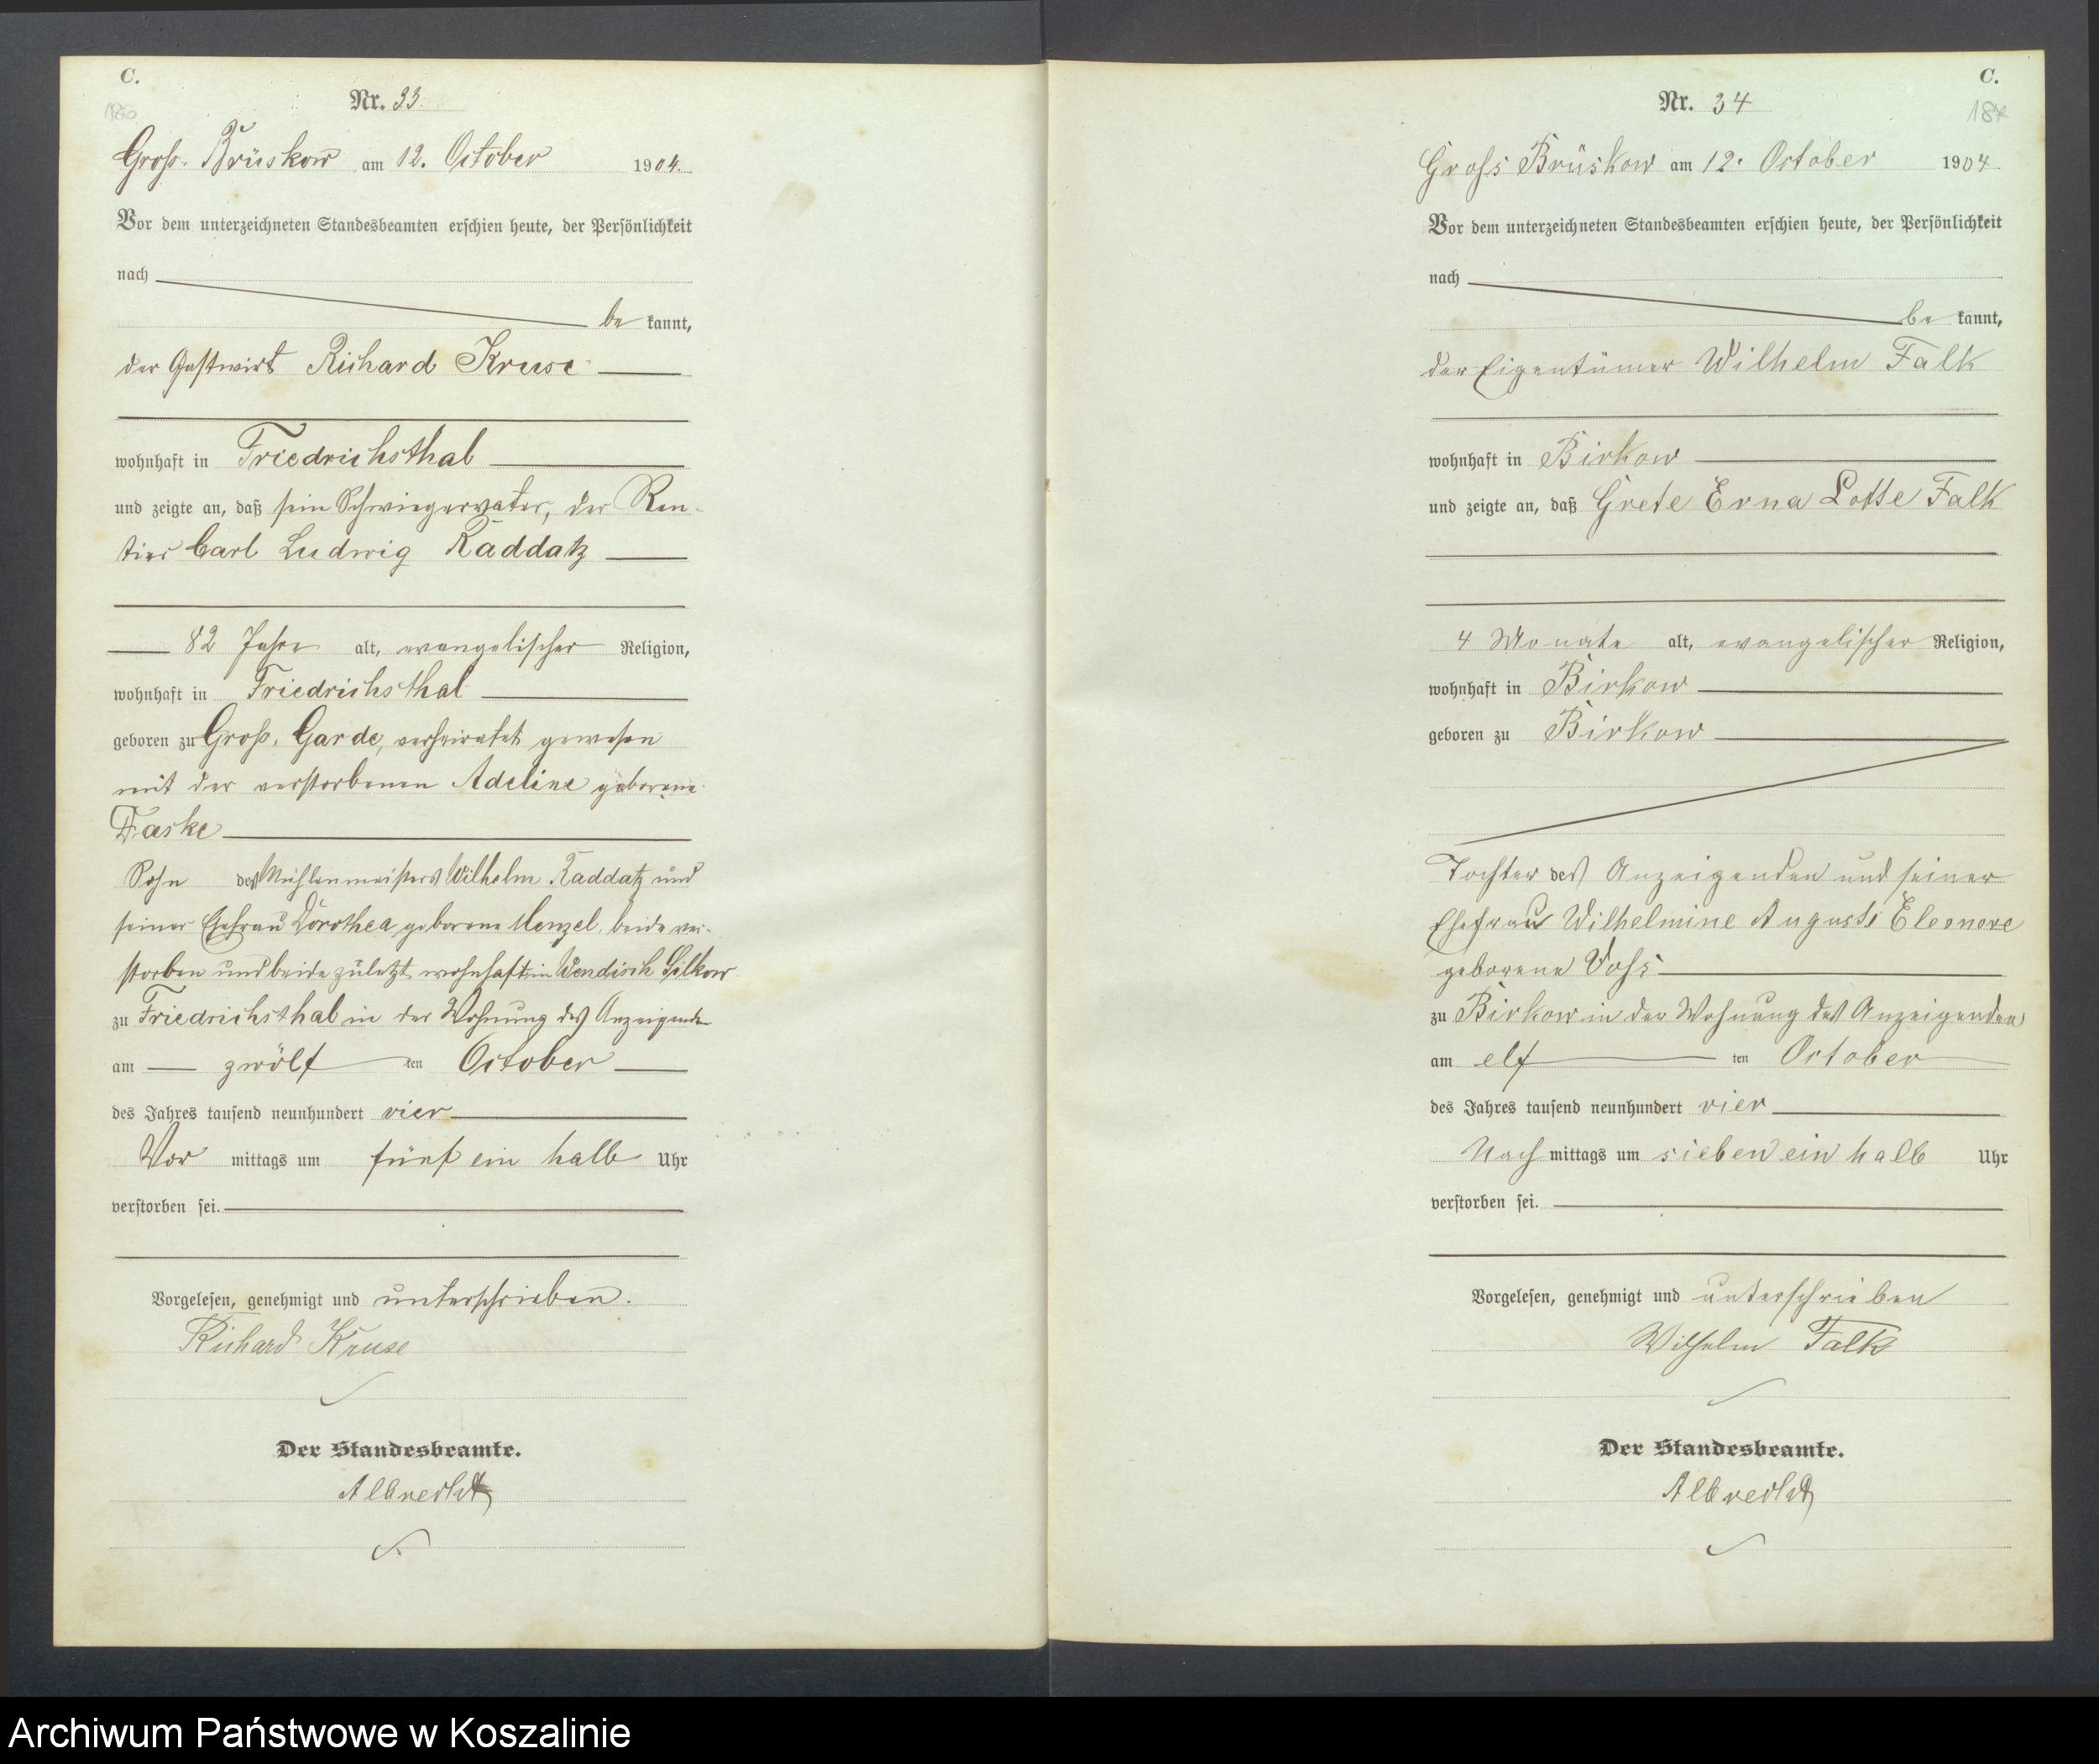 C.
Nr. 33.
Groß. Brüskow am 12. October 1904.
Vor dem unterzeichneten Standesbeamten erschien heute, der Persönlichkeit
nach
be kannt,
der Gastwirt Richard Kruse
wohnhaft in Friedrichsthal
und zeigte an, daß sein Schwiegervater, der Ren-
tier Carl Ludwig Raddatz
82 Jahre alt, evangelischer Religion,
wohnhaft in Friedrichsthal
geboren zu Groß. Garde, verheiratet gewesen
mit der verstorbenen Adeline geborene
Faske
Sohn des Mühlenmeisters Wilhelm Raddatz und
seiner Ehefrau Dorothea geborene Menzel, beide ver-
storben und beide zuletzt wohnhaft in Wendisch Silkow
zu Friedrichsthal in der Wohnung des Anzeigenden
am zwölf ten October
des Jahres tausend neunhundert vier
Vor mittags um fünf ein halb Uhr
verstorben sei.
Vorgelesen, genehmigt und unterschrieben.
Richard Kruse
Der Standesbeamte.
Albrecht
C.
Nr. 34
187
Gross Brüskow am 12. October 1904
Vor dem unterzeichneten Standesbeamten erschien heute, der Persönlichkeit
nach
be kannt,
der Eigentümer Wilhelm Falk
wohnhaft in Birkow
und zeigte an, daß Grete Erna Lotte Falk
4 Monate alt, evangelischer Religion,
wohnhaft in Birkow
geboren zu Birkow
Tochter des Anzeigenden und seiner
Ehefrau Wilhelmine Auguste Eleonore
geborene Voss
zu Birkow in der Wohnung des Anzeigenden
am elf ten October
des Jahres tausend neunhundert vier
Nach mittags um sieben ein halb Uhr
verstorben sei.
Vorgelesen, genehmigt und unterschrieben
Wilhelm Falk
Der Standesbeamte.
Albrecht
Archiwum Państwowe w Koszalinie